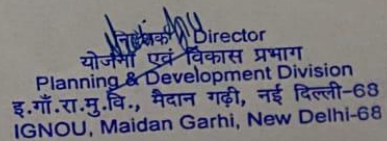 निदेशक/Director
योजना एवं विकास प्रभाग
Planning & Development Division
इ.गाँ.रा.मु.वि., मैदान गढ़ी, नई दिल्ली-68
IGNOU, Maidan Garhi, New Delhi-68